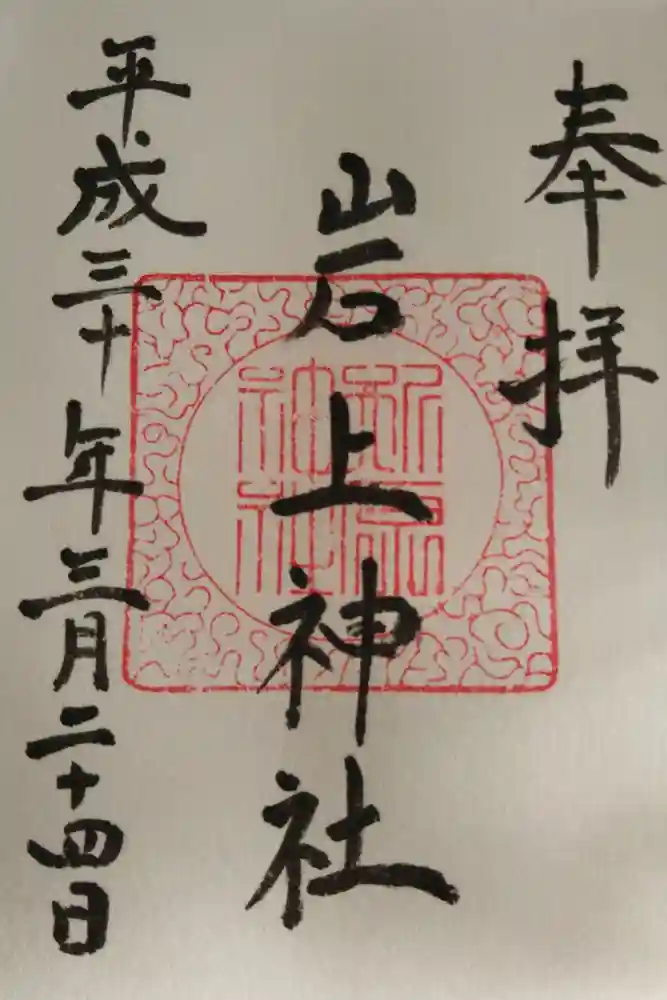 奉拝
岩上神社
原
神社
平成三十年三月二十四日